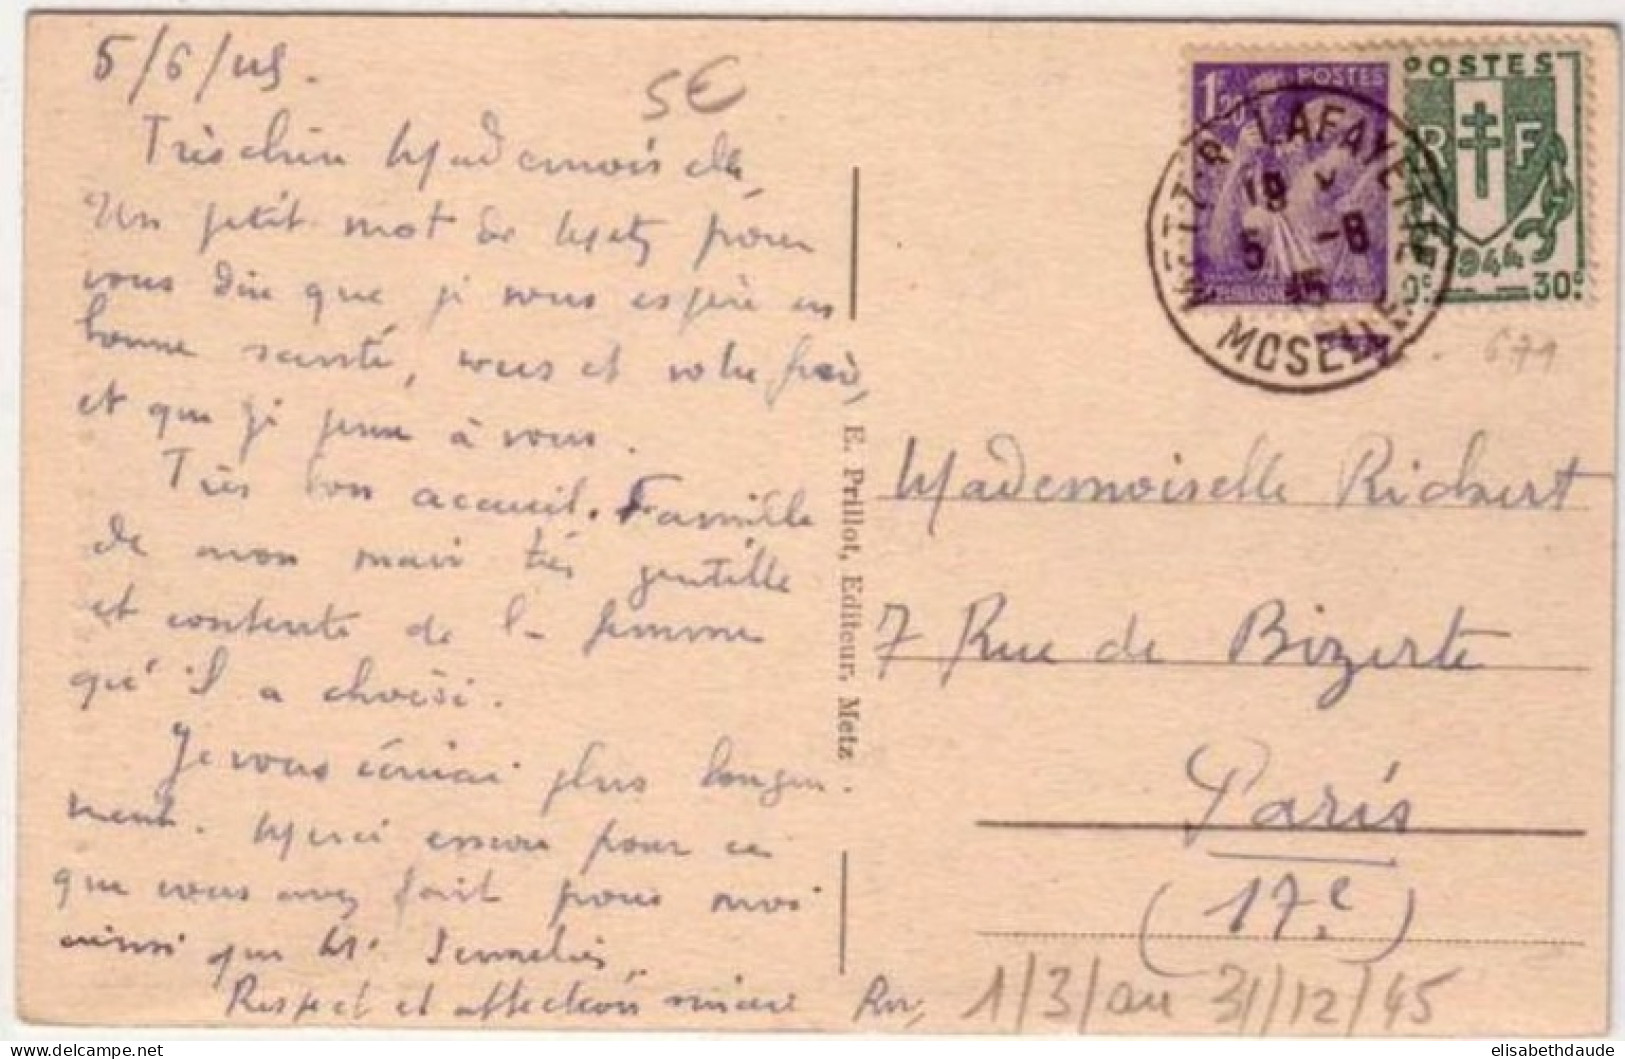 5/6/45.
5€
Très chère Mademoiselle,
Un petit mot de Metz pour
vous dire que je vous espère en
bonne santé, vous et votre
et que je pense à vous.
Très bon accueil. Famille
de mon mari très gentille
et contente de la femme
qu'il a choisi.
Je vous écrirai plus longue-
ment. Merci encore pour ce
que vous avez fait pour moi
ainsi que Mr
Respect et affection sincère
E. Prillot, Editeur, Metz
1F20 POSTES
POSTES
R F
1944
30c
METZ R. LAFAYETTE
19
5 -6
45
MOSELLE
671
Mademoiselle Richert
7 Rue de Bizerte
Paris
(17e)
1/3/au 31/12/45
elisabethdaude